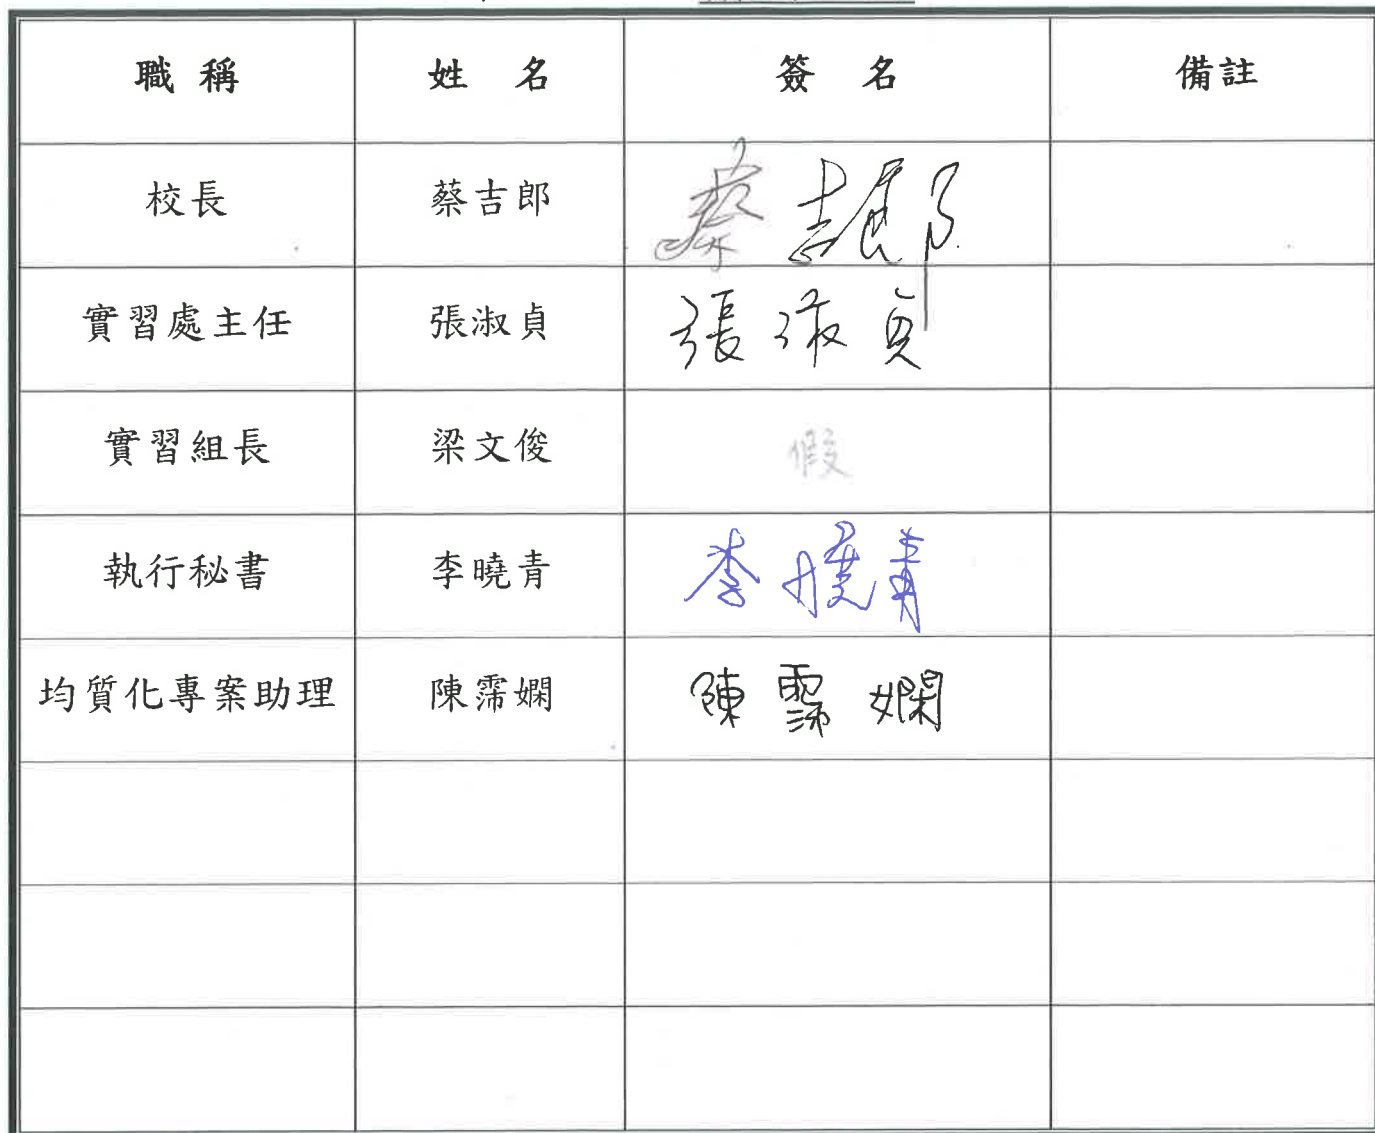 職稱 姓名 簽名 備註
校長 蔡吉郎 蔡吉郎
實習處主任 張淑貞 張淑貞
實習組長 梁文俊 假
執行秘書 李曉青 李曉青
均質化專案助理 陳霈嫻 陳霈嫻